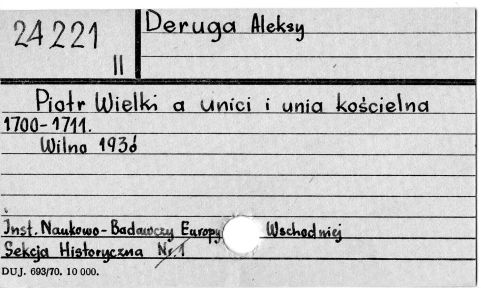 24221
II
Deruga Aleksy
Piotr Wielki a unici i unia kościelna
1700-1711.
Wilno 1936
Inst. Naukowo-Badawczy Europy Wschodniej
Sekcja Historyczna Nr. 1
DUJ. 693/70. 10 000.